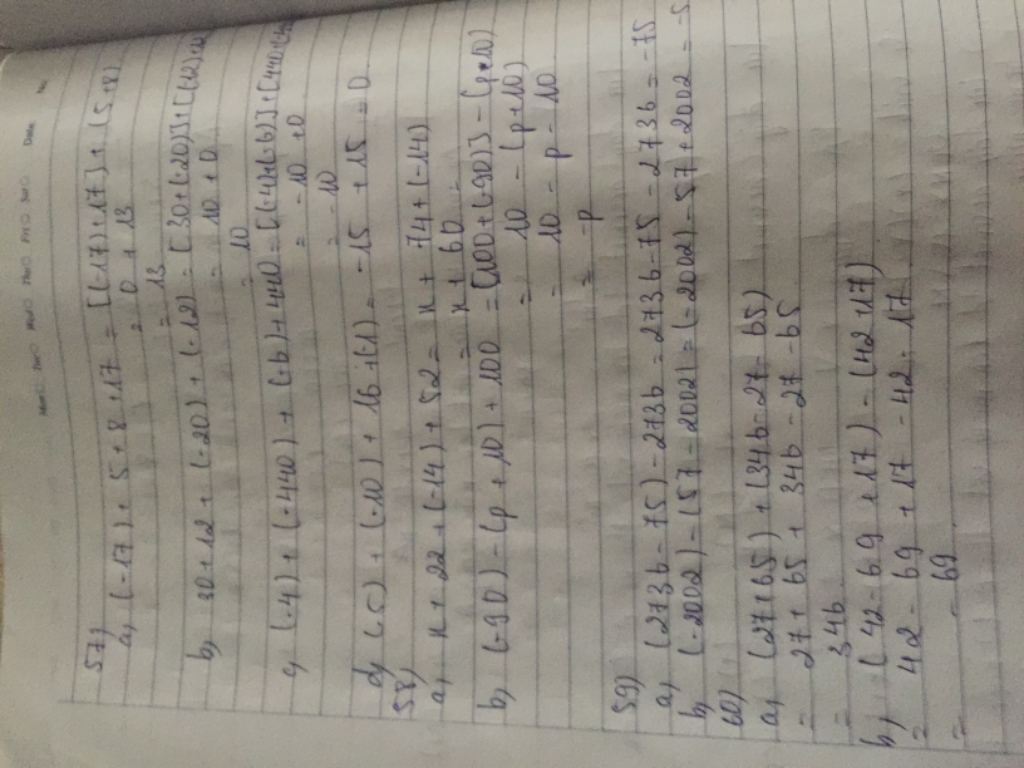 57)
a, (-17) + 5 + 8 + 17 = [(-17) + 17] + (5 + 8)
= 0 + 13
= 13
b, 30 + 12 + (-20) + (-12) = [30 + (-20)] + [(12) +
= 10 + 0
= 10
c, (-4) + (-440) + (-6) + 440 = [(-4) + (-6)] + [440 +
= -10 + 0
= -10
d, (-5) + (-10) + 16 + (1) = -15 + 15 = 0
58)
a, x + 22 + (-14) + 52 = x + 74 + (-14)
= x + 60
b, (-90) - (p + 10) + 100 = [100 + (-90)] - (p + 10)
= 10 - (p + 10)
= 10 - p - 10
= -p
59)
a, (2736 - 75) - 2736 = 2736 - 75 - 2736 = -75
b, (-2002) - (57 - 2002) = (-2002) - 57 + 2002 = -5
60)
a, (27 + 65) + (346 - 27 - 65)
= 27 + 65 + 346 - 27 - 65
= 346
b, (42 - 69 + 17) - (42 + 17)
= 42 - 69 + 17 - 42 - 17
= - 69